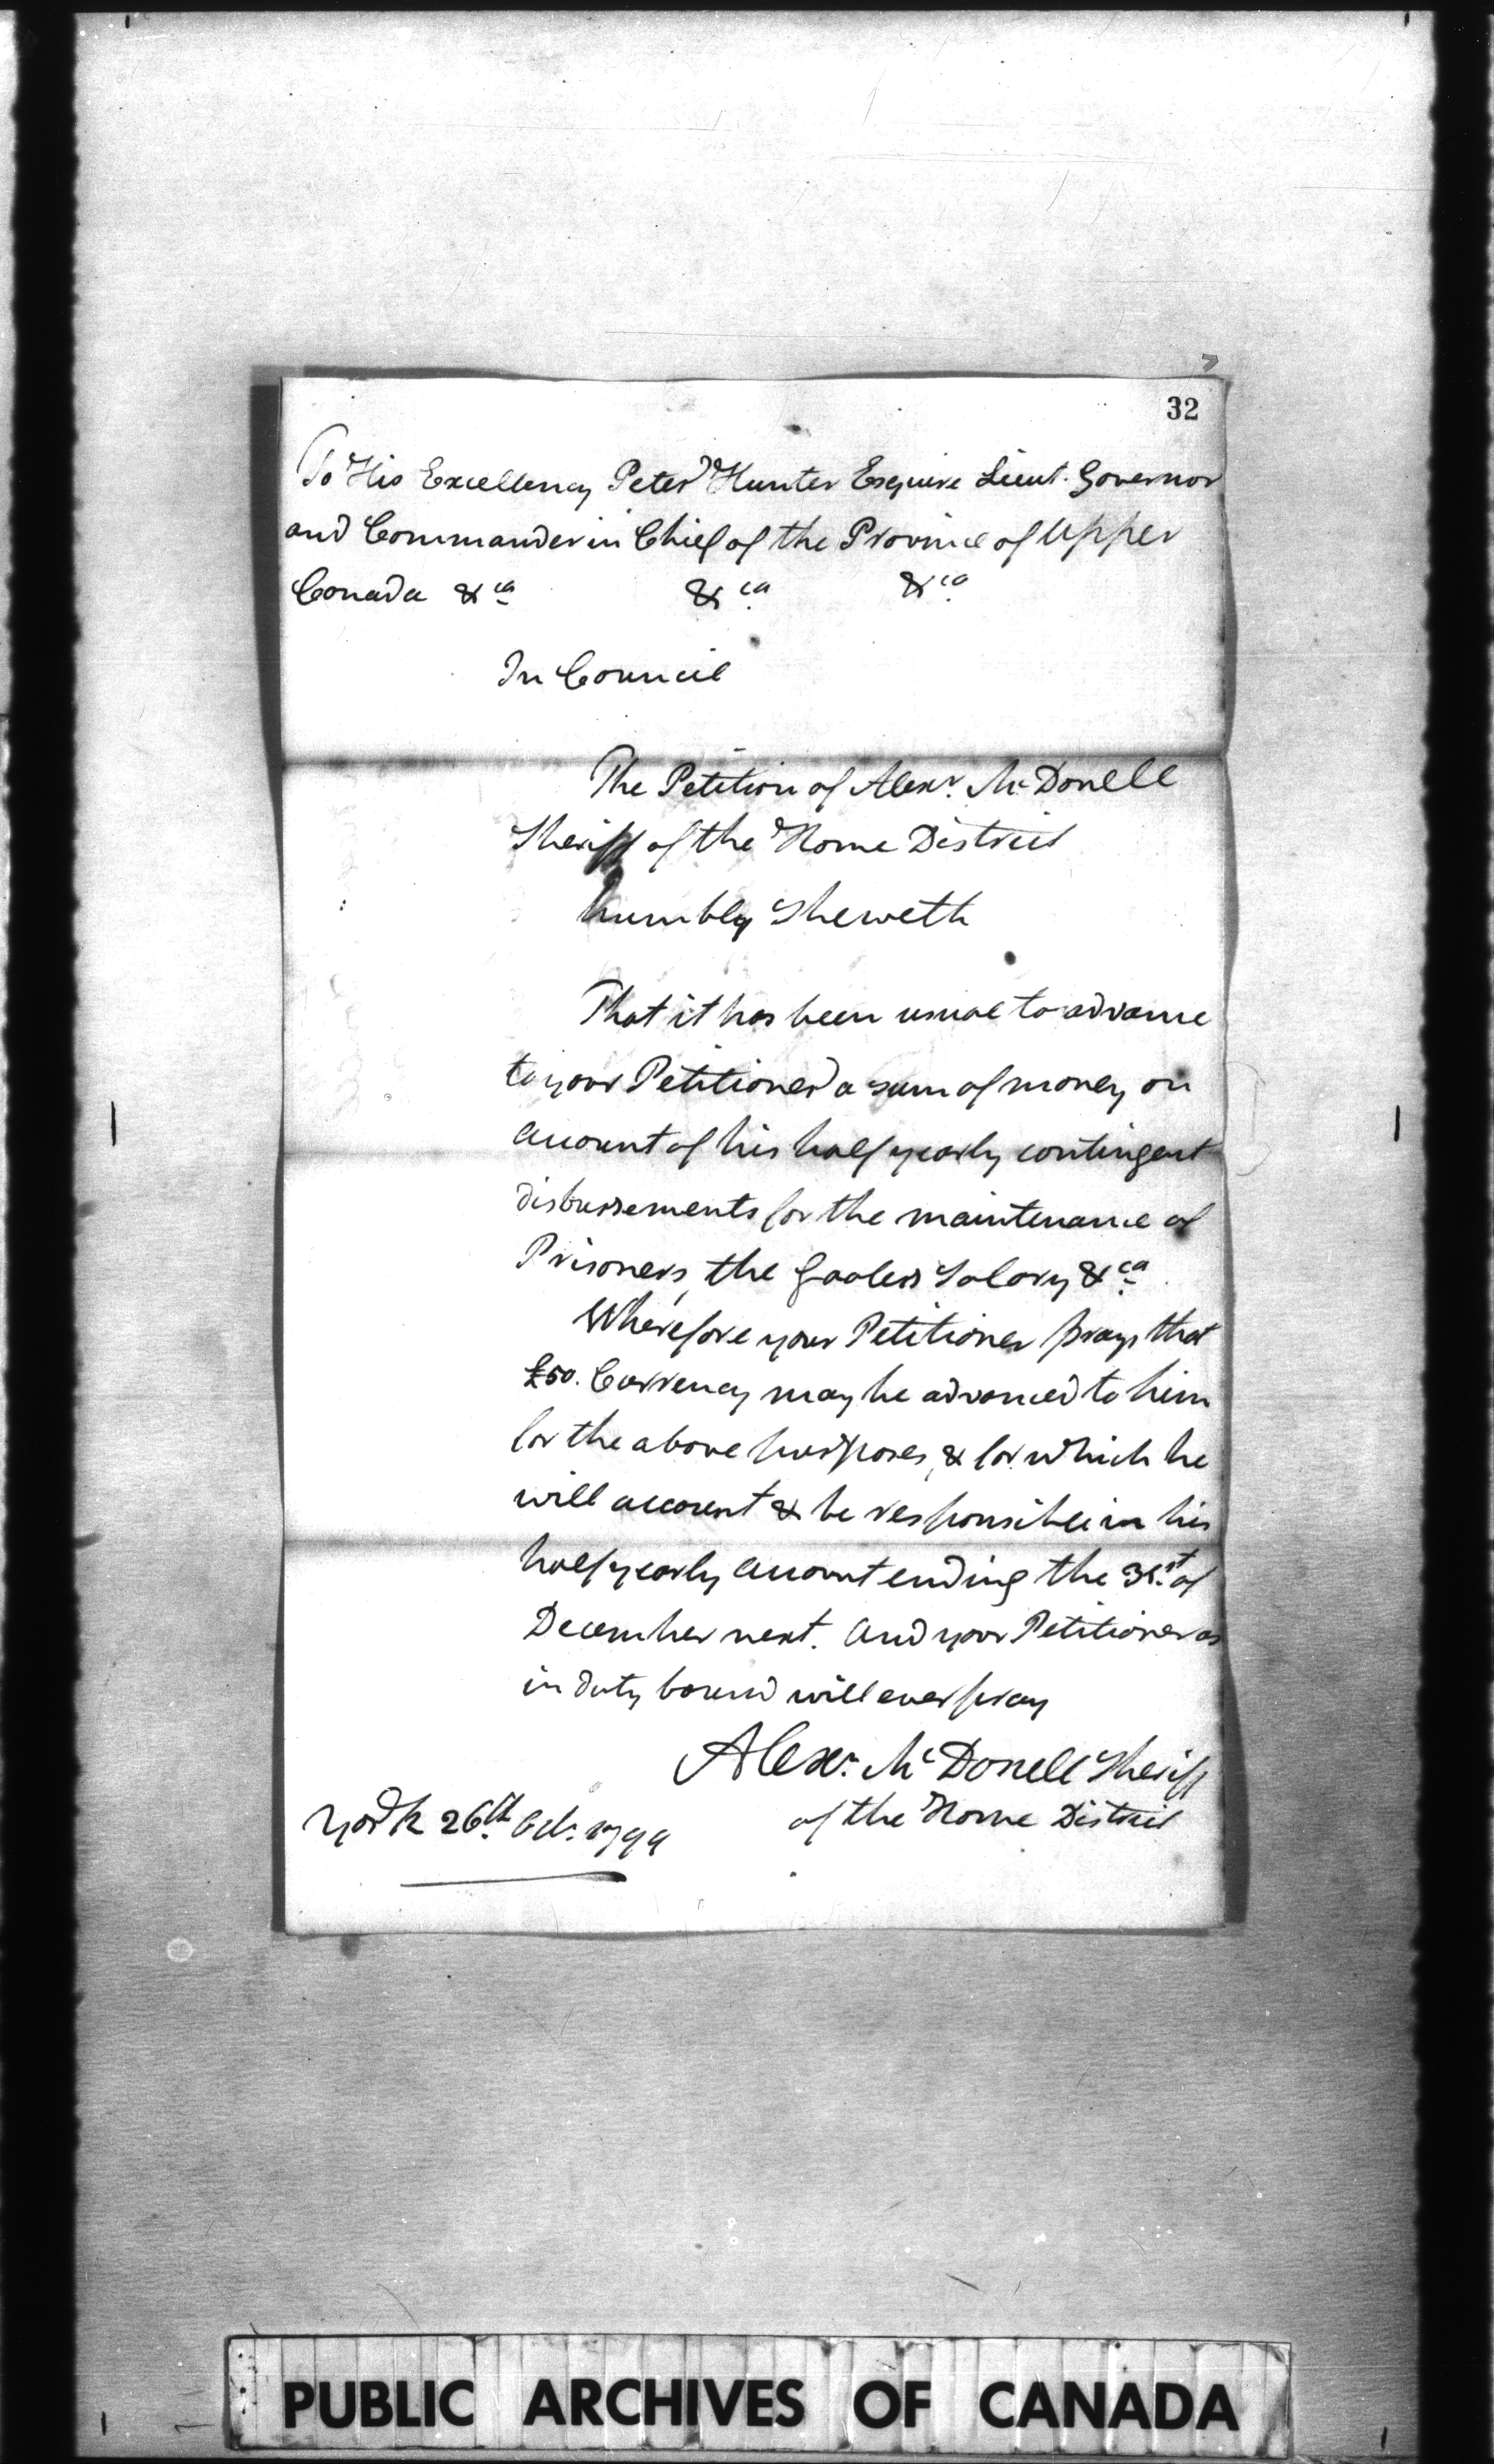 32
To His Excellency Peter Hunter Esquire Lieut. Governor
and Commander in Chief of the Province of Upper
Canada &ca &ca &ca
In Council
The Petition of Alexr. McDonell
Sheriff of the Home District
humbly Sheweth
That it has been usual to advance
to your Petitioner a sum of money on
account of his half yearly contingent
disbursements for the maintenance of
Prisoners, the Gaolers Salary &ca
Wherefore your Petitioner prays that
£50. Currency may be advanced to him
for the above purposes, & for which he
will account & be responsible in his
half yearly account ending the 31st. of
December next. And your Petitioner as
in duty bound will ever pray
Alexr. McDonell Sheriff
of the Home District
York 26th. Octr. 1799
PUBLIC ARCHIVES OF CANADA